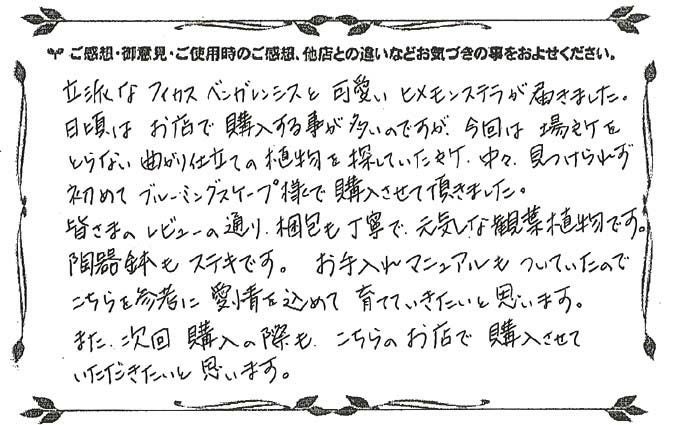 ご感想・御意見・ご使用時のご感想、他店との違いなどお気づきの事をおよせください。
立派な フィカス ベンガレンシスと 可愛い ヒメモンステラが 届きました。
日頃は お店で 購入する事が多いのですが、今回は 場所を
とらない 曲がり仕立ての 植物を 探していた所、中々、見つけられず
初めて ブルーミングスケープ様で 購入させて頂きました。
皆さまの レビューの通り、梱包も 丁寧で、元気な観葉植物です。
陶器鉢も ステキです。 お手入れマニュアルも ついていたので
こちらを参考に 愛情を込めて 育てていきたいと 思います。
また、次回 購入の際も、こちらの お店で 購入させて
いただきたいと 思います。